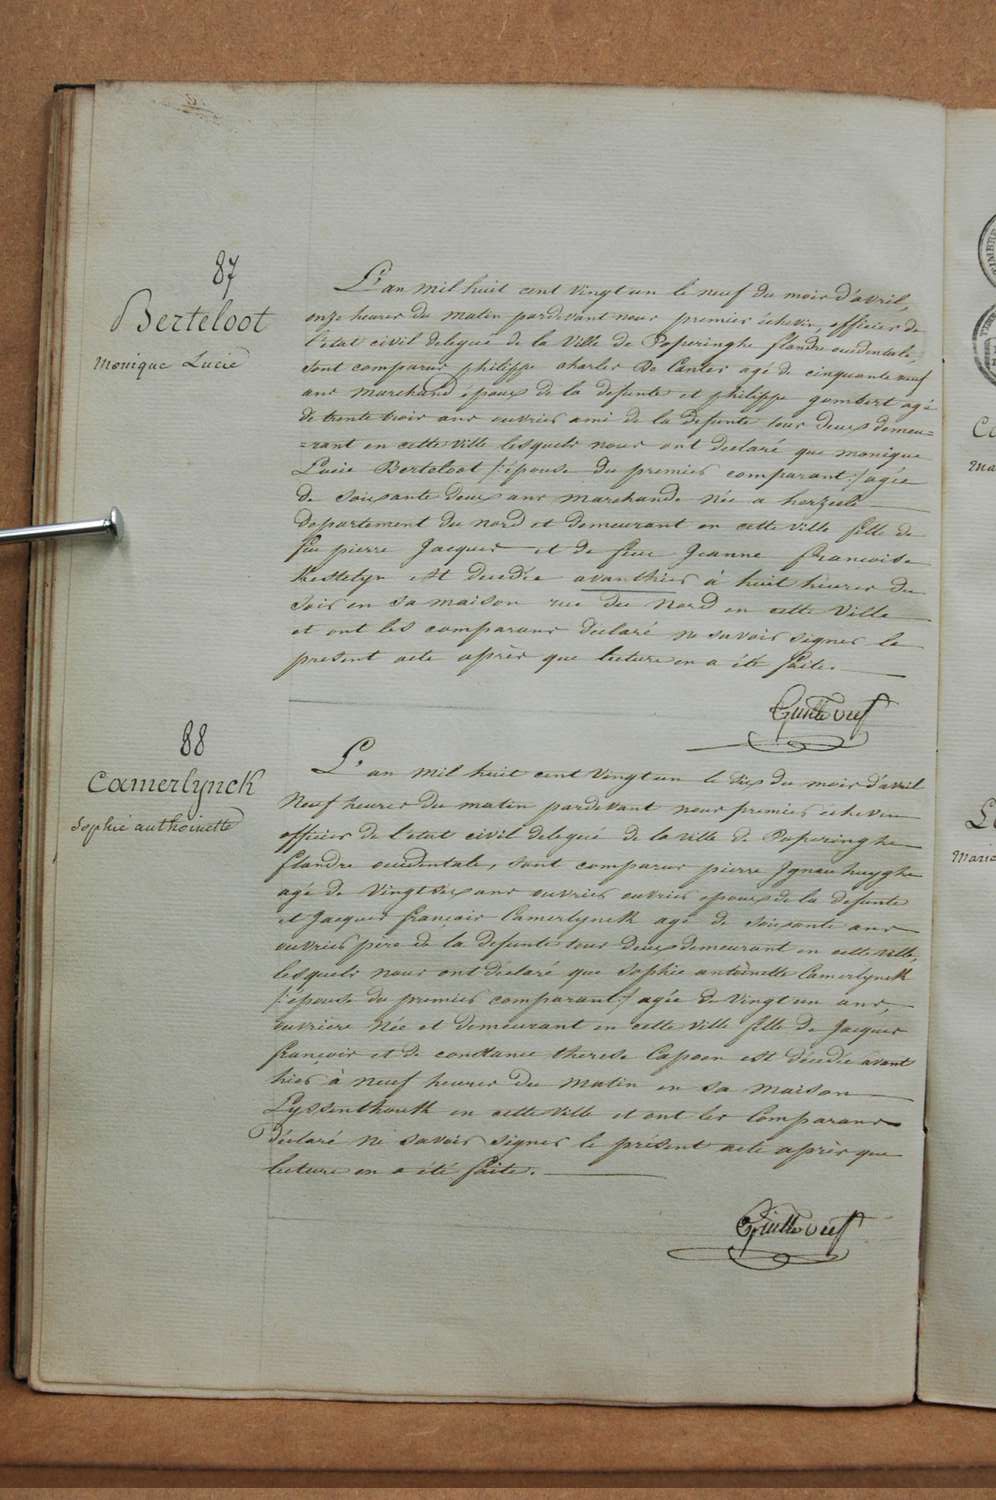 87
Berteloot
Monique Lucie
L'an mil huit cent vingt un le neuf du mois d'avril,
onze heures du matin pardevant nous premier échevin, officier de
l'état civil delegué de la Ville de Poperinghe flandre occidentale
sont comparus philippe charles De Canter agé de cinquante neuf
ans marchand époux de la defunte et philippe gombert agé
de trente trois ans ouvrier ami de la defunte tous deux demeu=
=rant en cette ville lesquels nous ont declaré que monique
Lucie Berteloot /:épouse du premier comparant:/ agée
de soixante deux ans marchande née a herzeele
departement du nord et demeurant en cette ville fille de
feu pierre Jacques et de feue Jeanne francoise
Kestelyn est decedée avanthier à huit heures du
soir en sa maison rue du Nord en cette Ville
et ont les comparans déclaré ne savoir signer le
present acte après que lecture en a été faite.
88
Camerlynck
Sophie anthoinette
L'an mil huit cent vingt un le dix du mois d'avril
Neuf heures du matin pardevant nous premier échevin
officier de l'état civil delegué de la ville de Poperinghe
flandre occidentale, sont comparus pierre Ignace huyghe
agé de vingt six ans ouvrier ouvrier epoux de la defunte
et Jacques françois Camerlynck agé de soixante ans
ouvrier père de la defunte tous deux demeurant en cette ville,
lesquels nous ont déclaré que Sophie antoinette Camerlynck
/:epouse du premier comparant:/ agée de vingt un ans,
ouvriere née et demeurant en cette ville fille de Jacques
françois et de constance therese Capoen est décedée avant
hier à neuf heures du matin en sa maison
Lyssenthouk en cette ville et ont les Comparans
déclaré ne savoir signer le présent acte après que
lecture en a été faite.